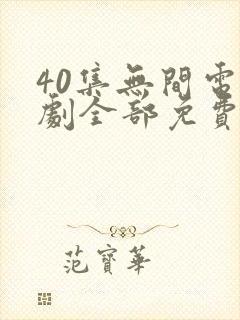 40集無間電
劇全部免費
范寶華